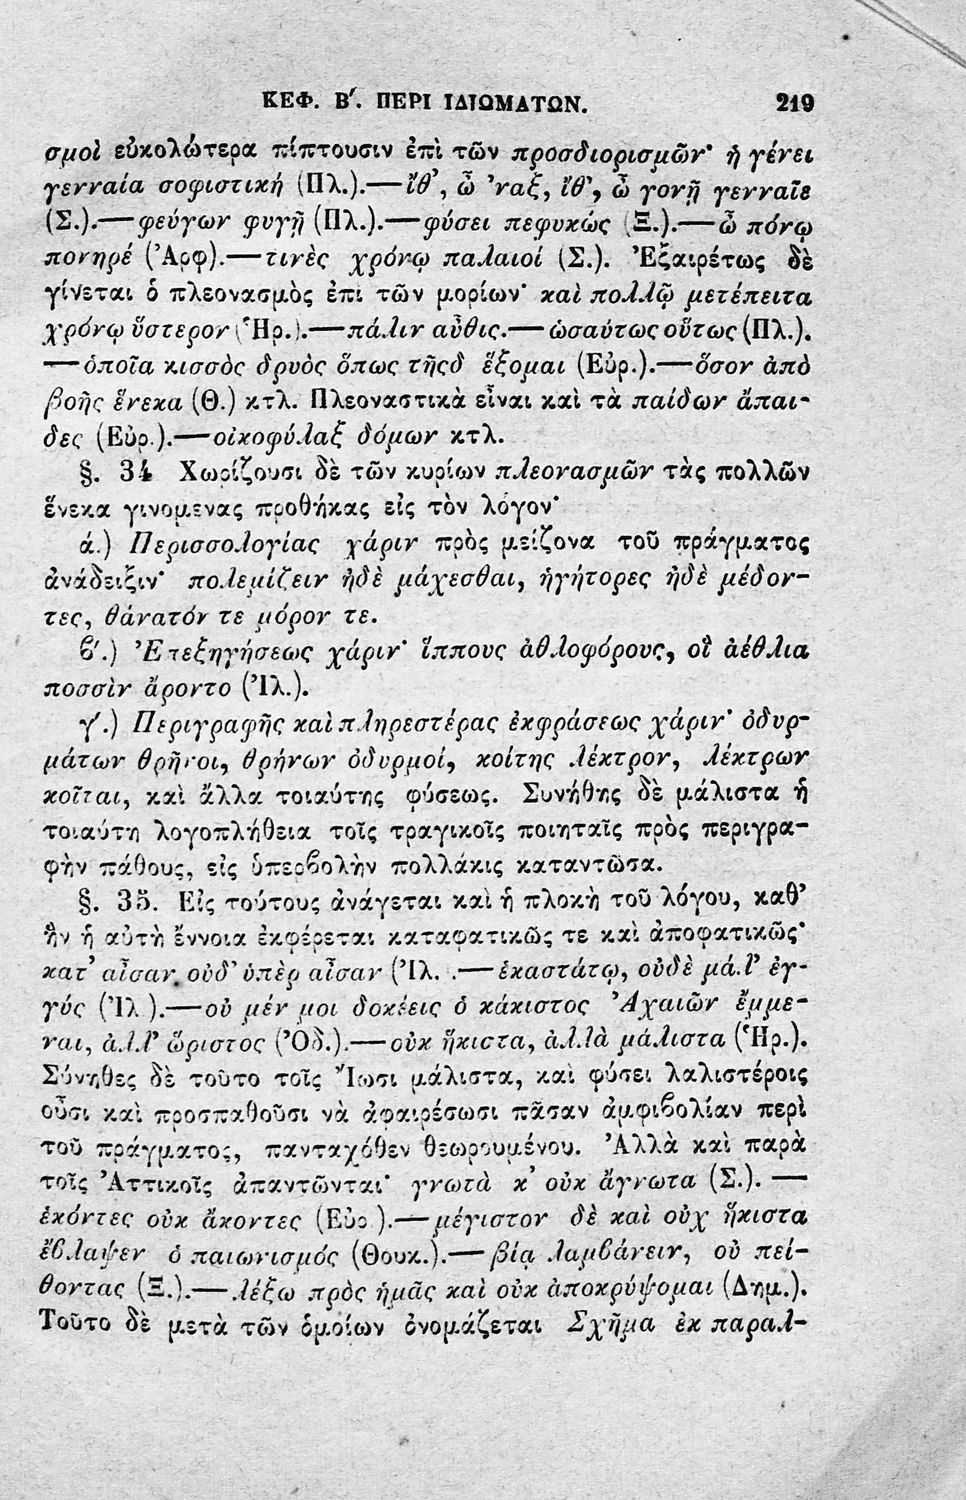 ΚΕΦ. Β'. ΠΕΡΙ ΙΔΙΩΜΑΤΩΝ. 219
σμοὶ εὐκολώτερα πίπτουσιν ἐπὶ τῶν προσδιορισμῶν· ἡ γένει
γενναία σοφιστική (Πλ.).—ἴθ', ὦ 'ναξ, ἴθ', ὦ γονῇ γενναῖε
(Σ.).—φεύγων φυγῇ (Πλ.).—φύσει πεφυκώς (Ξ.).—ὦ πόνῳ
πονηρέ (Ἀρφ).—τινὲς χρόνῳ παλαιοί (Σ.). Ἐξαιρέτως δὲ
γίνεται ὁ πλεονασμὸς ἐπὶ τῶν μορίων· καὶ πολλῷ μετέπειτα
χρόνῳ ὕστερον (Ἡρ.).—πάλιν αὖθις.—ὡσαύτως οὕτως (Πλ.).
—ὁποῖα κισσὸς δρυὸς ὅπως τῆσδ ἕξομαι (Εὐρ.).—ὅσον ἀπὸ
βοῆς ἕνεκα (Θ.) κτλ. Πλεοναστικὰ εἶναι καὶ τὰ παίδων ἄπαι-
δες (Εὐρ.).—οἰκοφύλαξ δόμων κτλ.
§. 34 Χωρίζουσι δὲ τῶν κυρίων πλεονασμῶν τὰς πολλῶν
ἕνεκα γινομένας προθήκας εἰς τὸν λόγον·
ά.) Περισσολογίας χάριν πρὸς μείζονα τοῦ πράγματος
ἀνάδειξιν· πολεμίζειν ἠδὲ μάχεσθαι, ἡγήτορες ἠδὲ μέδον-
τες, θάνατόν τε μόρον τε.
ϐ'.) Ἐπεξηγήσεως χάριν· ἵππους ἀθλοφόρους, οἳ ἀέθλια
ποσσὶν ἄροντο (Ἰλ.).
γ'.) Περιγραφῆς καὶ πληρεστέρας ἐκφράσεως χάριν· ὀδυρ-
μάτων θρῆνοι, θρήνων ὀδυρμοί, κοίτης λέκτρον, λέκτρων
κοῖται, καὶ ἄλλα τοιαύτης φύσεως. Συνήθης δὲ μάλιστα ἡ
τοιαύτη λογοπλήθεια τοῖς τραγικοῖς ποιηταῖς πρὸς περιγρα-
φὴν πάθους, εἰς ὑπερϐολὴν πολλάκις καταντῶσα.
§. 35. Εἰς τούτους ἀνάγεται καὶ ἡ πλοκὴ τοῦ λόγου, καθ'
ἣν ἡ αὐτὴ ἔννοια ἐκφέρεται καταφατικῶς τε καὶ ἀποφατικῶς·
κατ' αἶσαν οὐδ' ὑπὲρ αἶσαν (Ἰλ. .—ἑκαστάτω, οὐδὲ μάλ' ἐγ-
γύς (Ἰλ ).—οὐ μέν μοι δοκέεις ὁ κάκιστος Ἀχαιῶν ἔμμε-
ναι, ἀλλ' ὥριστος (Ὀδ.).—οὐκ ἥκιστα, ἀλλὰ μάλιστα (Ἡρ.).
Σύνηθες δὲ τοῦτο τοῖς Ἴωσι μάλιστα, καὶ φύσει λαλιστέροις
οὖσι καὶ προσπαθοῦσι νὰ ἀφαιρέσωσι πᾶσαν ἀμφιϐολίαν περὶ
τοῦ πράγματος, πανταχόθεν θεωρουμένου. Ἀλλὰ καὶ παρὰ
τοῖς Ἀττικοῖς ἀπαντῶνται· γνωτὰ κ' οὐκ ἄγνωτα (Σ.).—
ἑκόντες οὐκ ἄκοντες (Εὐρ ).—μέγιστον δὲ καὶ οὐχ ἥκιστα
ἔϐλαψεν ὁ παιωνισμός (Θουκ.).—βίᾳ λαμϐάνειν, οὐ πεί-
θοντας (Ξ.).—λέξω πρὸς ἡμᾶς καὶ οὐκ ἀποκρύψομαι (Δημ.).
Τοῦτο δὲ μετὰ τῶν ὁμοίων ὀνομάζεται Σχῆμα ἐκ παραλ-